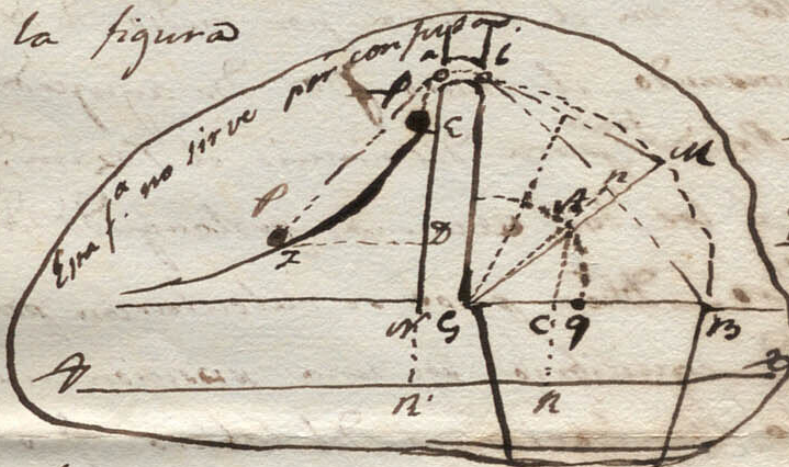 la figura
Esta f.ª no sirve por confusa.
a b
P E
M
P A n
z D
N G C q B
D D
n' n